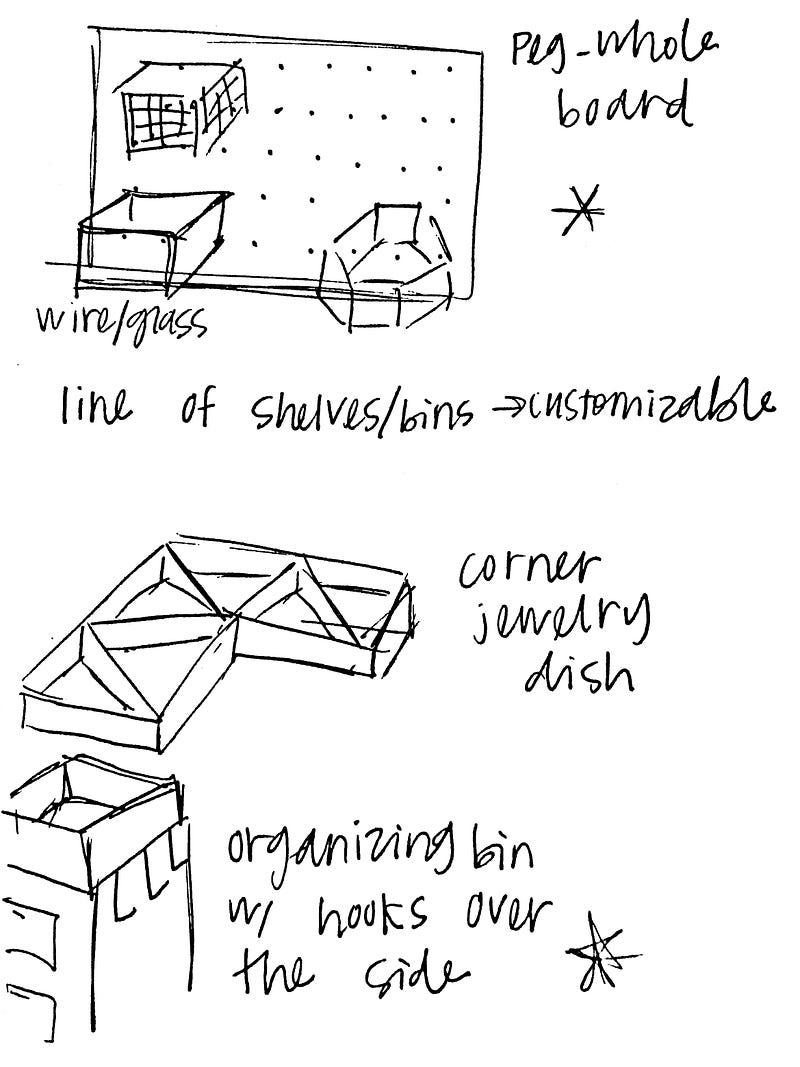 peg-whole
board
wire/glass
line of shelves/bins → customizable
corner
jewelry
dish
organizing bin
w/ hooks over
the side